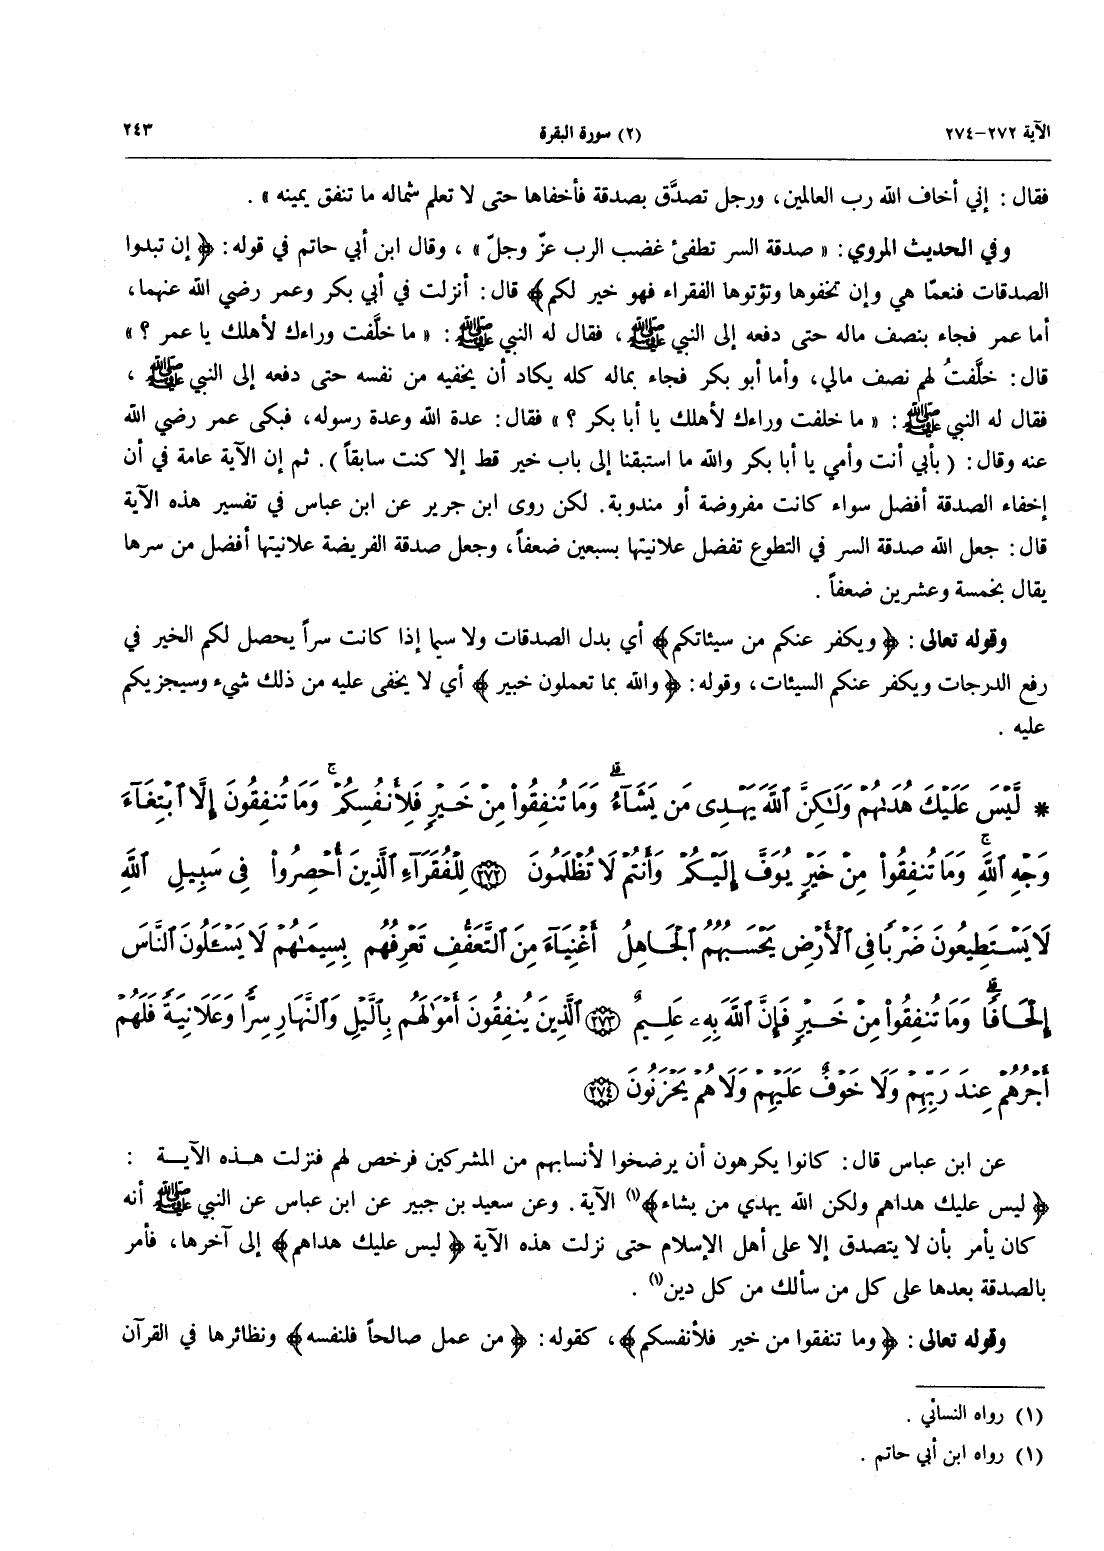 الآية ٢٧٢-٢٧٤ (٢) سورة البقرة ٢٤٣
فقال : إني أخاف الله رب العالمين، ورجل تصدَّق بصدقة فأخفاها حتى لا تعلم شماله ما تنفق يمينه » .
وفي الحديث المروي : « صدقة السر تطفئ غضب الرب عزّ وجلّ » ، وقال ابن أبي حاتم في قوله : ﴿ إن تبدوا
الصدقات فنعمّا هي وإن تخفوها وتؤتوها الفقراء فهو خير لكم﴾ قال : أنزلت في أبي بكر وعمر رضي الله عنهما،
أما عمر فجاء بنصف ماله حتى دفعه إلى النبي ﷺ ، فقال له النبي ﷺ : « ما خلَّفت وراءك لأهلك يا عمر ؟ »
قال : خلَّفتُ لهم نصف مالي، وأما أبو بكر فجاء بماله كله يكاد أن يخفيه من نفسه حتى دفعه إلى النبي ﷺ ،
فقال له النبي ﷺ : « ما خلفت وراءك لأهلك يا أبا بكر ؟ » فقال : عدة الله وعدة رسوله، فبكى عمر رضي الله
عنه وقال : ( بأبي أنت وأمي يا أبا بكر والله ما استبقنا إلى باب خير قط إلا كنت سابقاً ). ثم إن الآية عامة في أن
إخفاء الصدقة أفضل سواء كانت مفروضة أو مندوبة. لكن روى ابن جرير عن ابن عباس في تفسير هذه الآية
قال : جعل الله صدقة السر في التطوع تفضل علانيتها بسبعين ضعفاً، وجعل صدقة الفريضة علانيتها أفضل من سرها
يقال بخمسة وعشرين ضعفاً .
وقوله تعالى : ﴿ ويكفر عنكم من سيئاتكم﴾ أي بدل الصدقات ولا سيما إذا كانت سراً يحصل لكم الخير في
رفع الدرجات ويكفر عنكم السيئات، وقوله : ﴿ والله بما تعملون خبير ﴾ أي لا يخفى عليه من ذلك شيء وسيجزيكم
عليه .
* لَّيْسَ عَلَيْكَ هُدَىٰهُمْ وَلَـٰكِنَّ ٱللَّهَ يَهْدِى مَن يَشَآءُ ۗ وَمَا تُنفِقُوا۟ مِنْ خَيْرٍ فَلِأَنفُسِكُمْ ۚ وَمَا تُنفِقُونَ إِلَّا ٱبْتِغَآءَ
وَجْهِ ٱللَّهِ ۚ وَمَا تُنفِقُوا۟ مِنْ خَيْرٍ يُوَفَّ إِلَيْكُمْ وَأَنتُمْ لَا تُظْلَمُونَ ﴿٢٧٢﴾ لِلْفُقَرَآءِ ٱلَّذِينَ أُحْصِرُوا۟ فِى سَبِيلِ ٱللَّهِ
لَا يَسْتَطِيعُونَ ضَرْبًا فِى ٱلْأَرْضِ يَحْسَبُهُمُ ٱلْجَاهِلُ أَغْنِيَآءَ مِنَ ٱلتَّعَفُّفِ تَعْرِفُهُم بِسِيمَـٰهُمْ لَا يَسْـَٔلُونَ ٱلنَّاسَ
إِلْحَافًا ۗ وَمَا تُنفِقُوا۟ مِنْ خَيْرٍ فَإِنَّ ٱللَّهَ بِهِۦ عَلِيمٌ ﴿٢٧٣﴾ ٱلَّذِينَ يُنفِقُونَ أَمْوَٰلَهُم بِٱلَّيْلِ وَٱلنَّهَارِ سِرًّا وَعَلَانِيَةً فَلَهُمْ
أَجْرُهُمْ عِندَ رَبِّهِمْ وَلَا خَوْفٌ عَلَيْهِمْ وَلَا هُمْ يَحْزَنُونَ ﴿٢٧٤﴾
عن ابن عباس قال : كانوا يكرهون أن يرضخوا لأنسابهم من المشركين فرخص لهم فنزلت هذه الآية :
﴿ ليس عليك هداهم ولكن الله يهدي من يشاء﴾(١) الآية . وعن سعيد بن جبير عن ابن عباس عن النبي ﷺ أنه
كان يأمر بأن لا يتصدق إلا على أهل الإسلام حتى نزلت هذه الآية ﴿ ليس عليك هداهم﴾ إلى آخرها، فأمر
بالصدقة بعدها على كل من سألك من كل دين(١) .
وقوله تعالى : ﴿ وما تنفقوا من خير فلأنفسكم﴾، كقوله : ﴿ من عمل صالحاً فلنفسه﴾ ونظائرها في القرآن
(١) رواه النسائي .
(١) رواه ابن أبي حاتم .